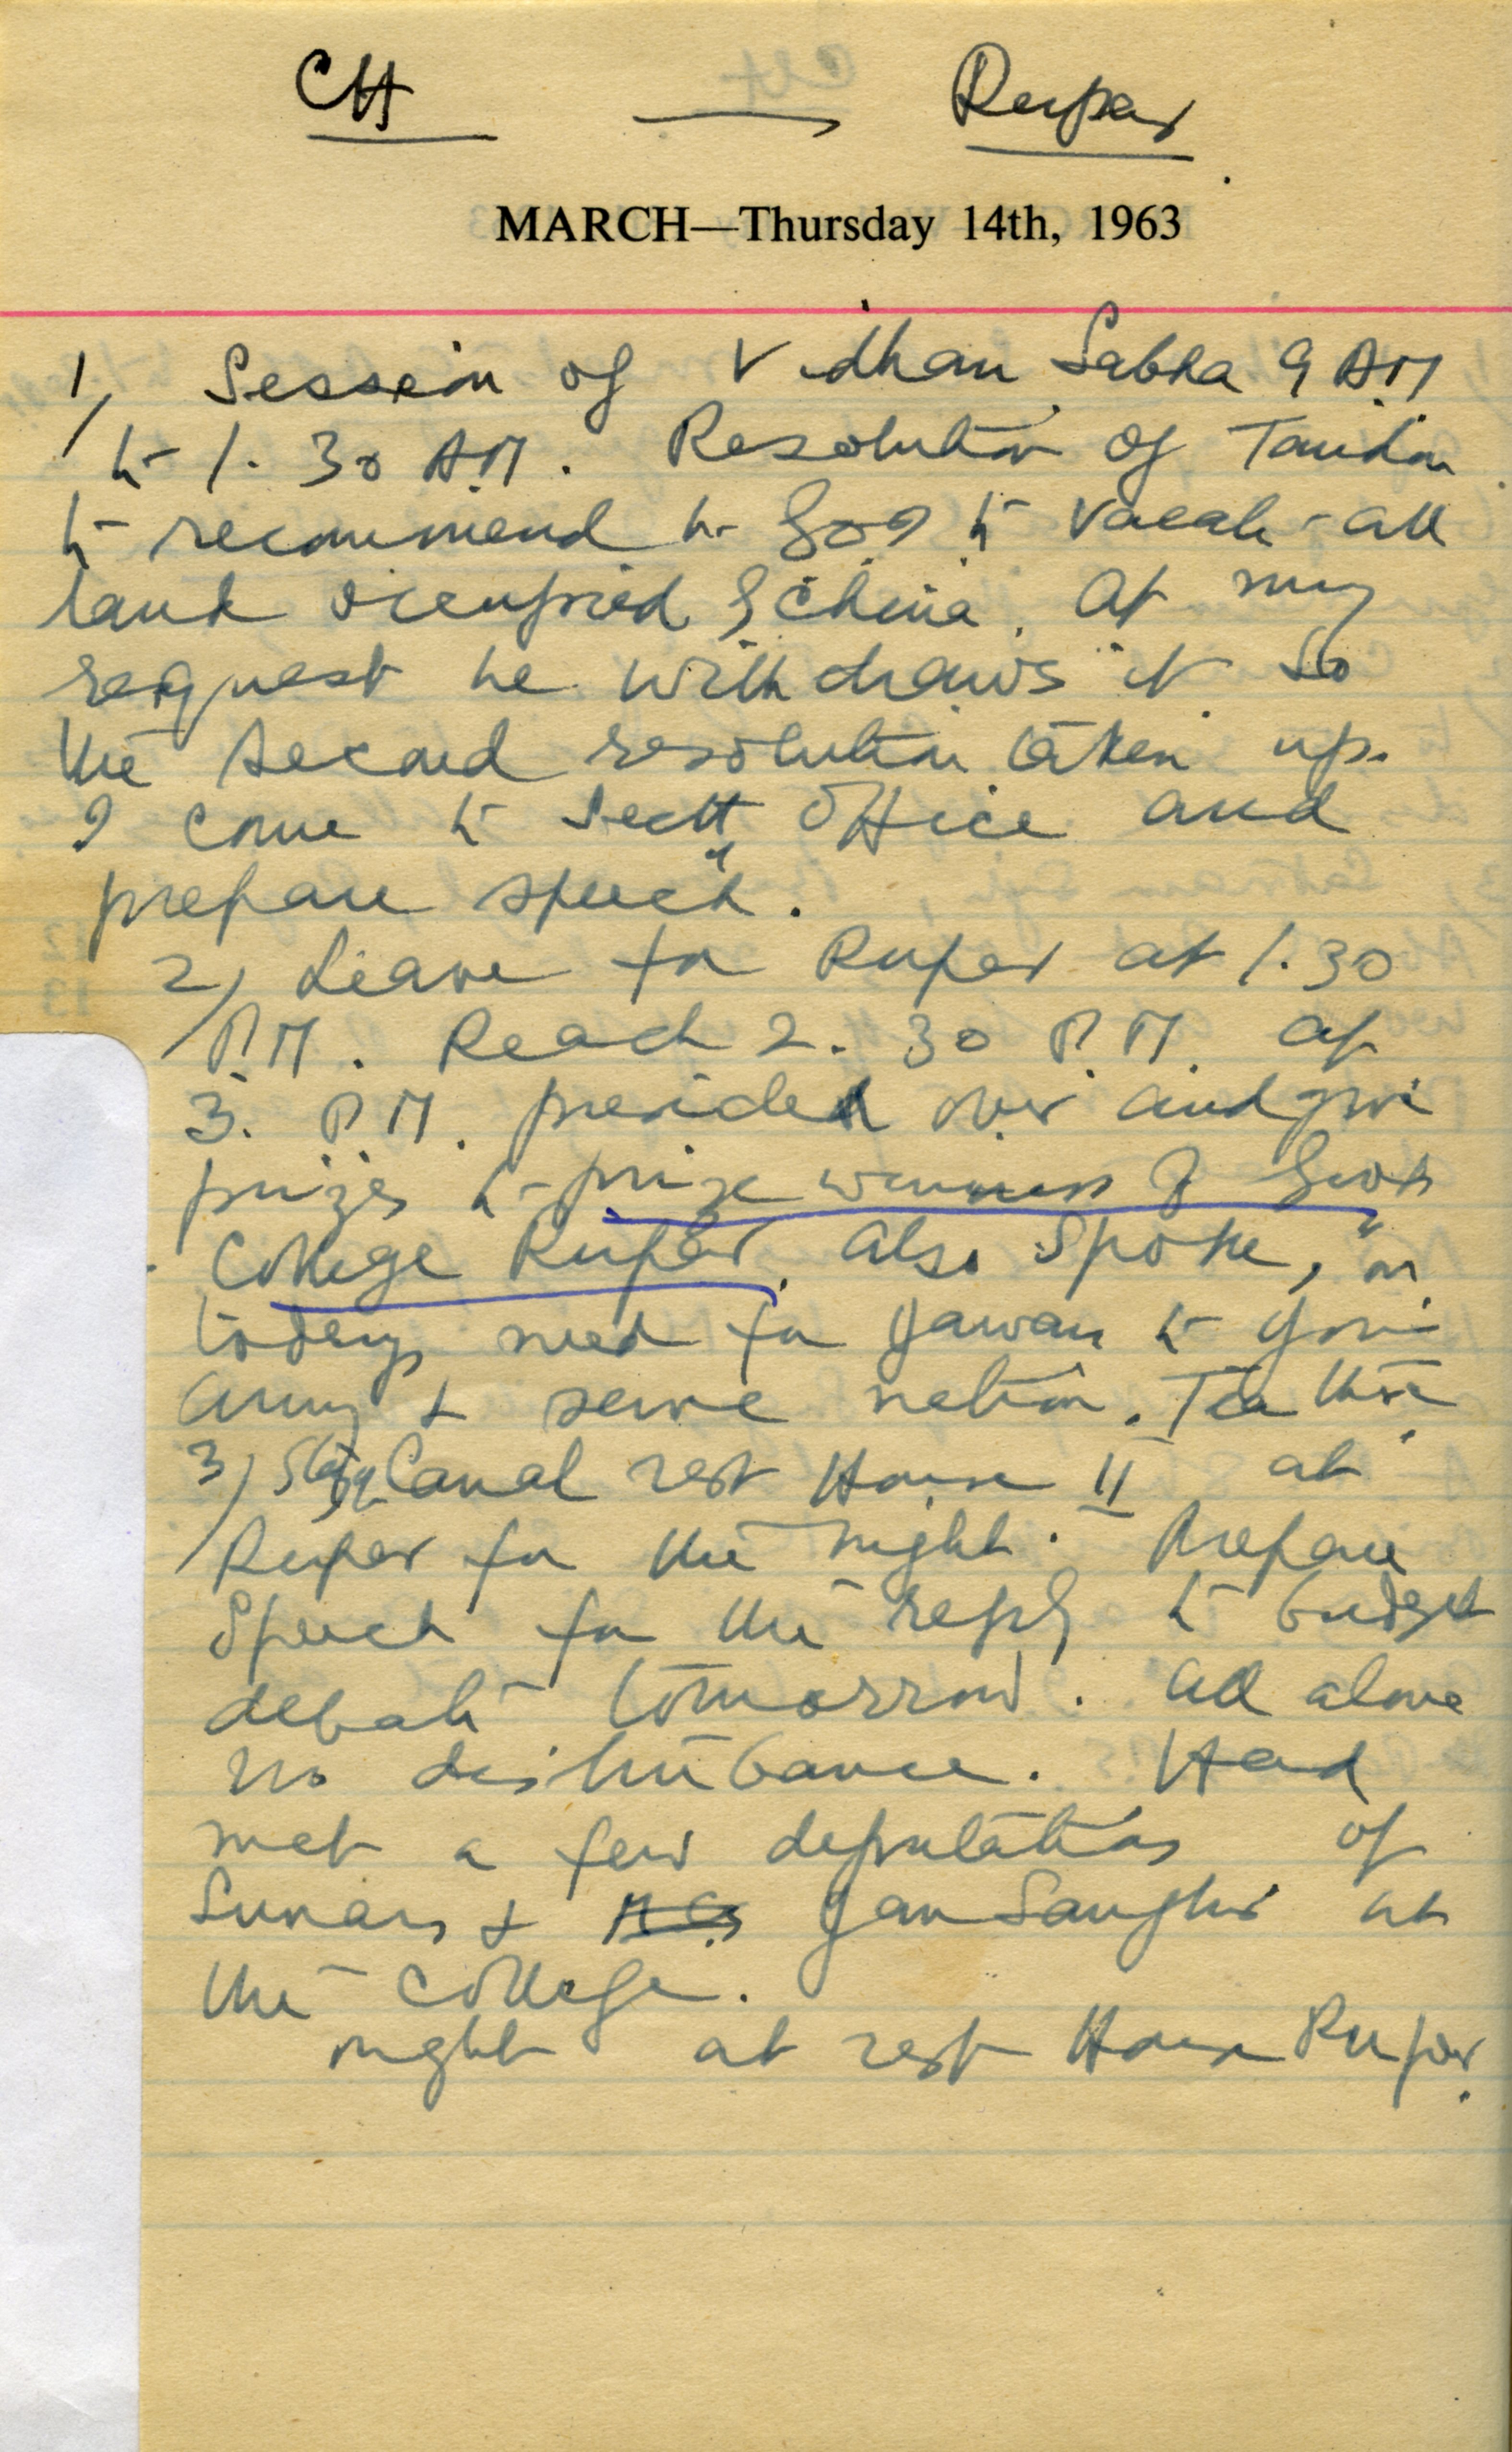 CH → Rupar
MARCH—Thursday 14th, 1963
1) Session of Vidhan Sabha 9 AM
to 1.30 AM. Resolution of Tandon
to recommend to GOI to vacate all
land occupied by China. At my
request he withdraws it so
the second resolution taken up.
I come to Sectt office and
prepare speech.
2) Leave for Rupar at 1.30
P.M. Reach 2.30 P.M. At
3. P.M. presided over and give
prizes to prize winners of Govt
College Rupar. Also spoke, on
todays need for Jawan to join
army & serve nation. Tea there
3) Stay Canal rest House II at
Rupar for the night. Prepare
speech for the reply to budget
debate tomorrow. All alone
no disturbance. Had
met a few deputations of
Sunars & Jan Sanghis at
the College.
night at rest House Rupar.